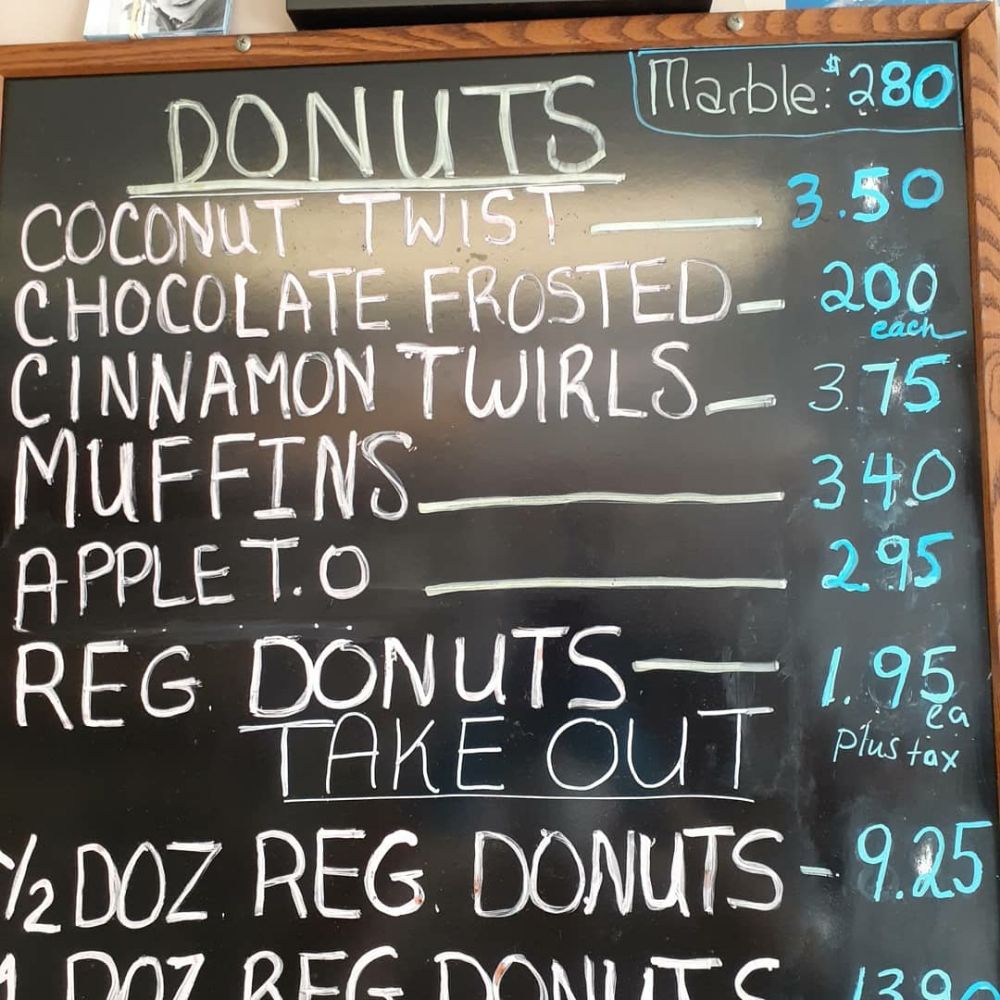 DONUTS
Marble: $280
COCONUT TWIST 3.50
CHOCOLATE FROSTED 200
each
CINNAMON TWIRLS 3.75
MUFFINS 340
APPLE T.O 2.95
REG. DONUTS 1.95
ea
plus tax
TAKE OUT
1/2 DOZ. REG. DONUTS - 9.25
1 DOZ REG DONUTS 1390